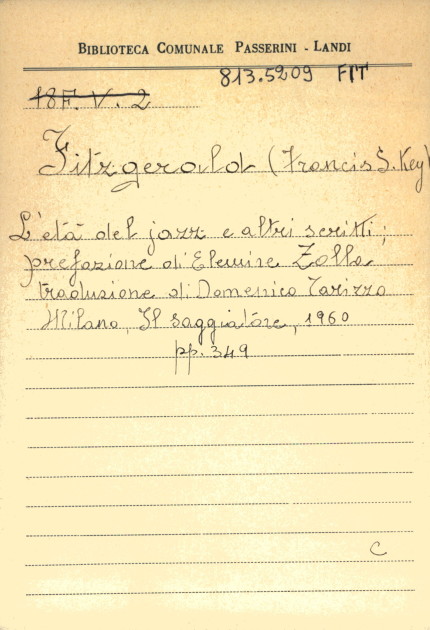 BIBLIOTECA COMUNALE PASSERINI - LANDI
813.5209 FIT
18F. V. 2
Fitzgerald (Francis S. Key)
L'età del jazz e altri scritti;
prefazione di Elemire Zolla
traduzione di Domenico Tarizzo
Milano, Il saggiatore, 1960
pp. 349
C